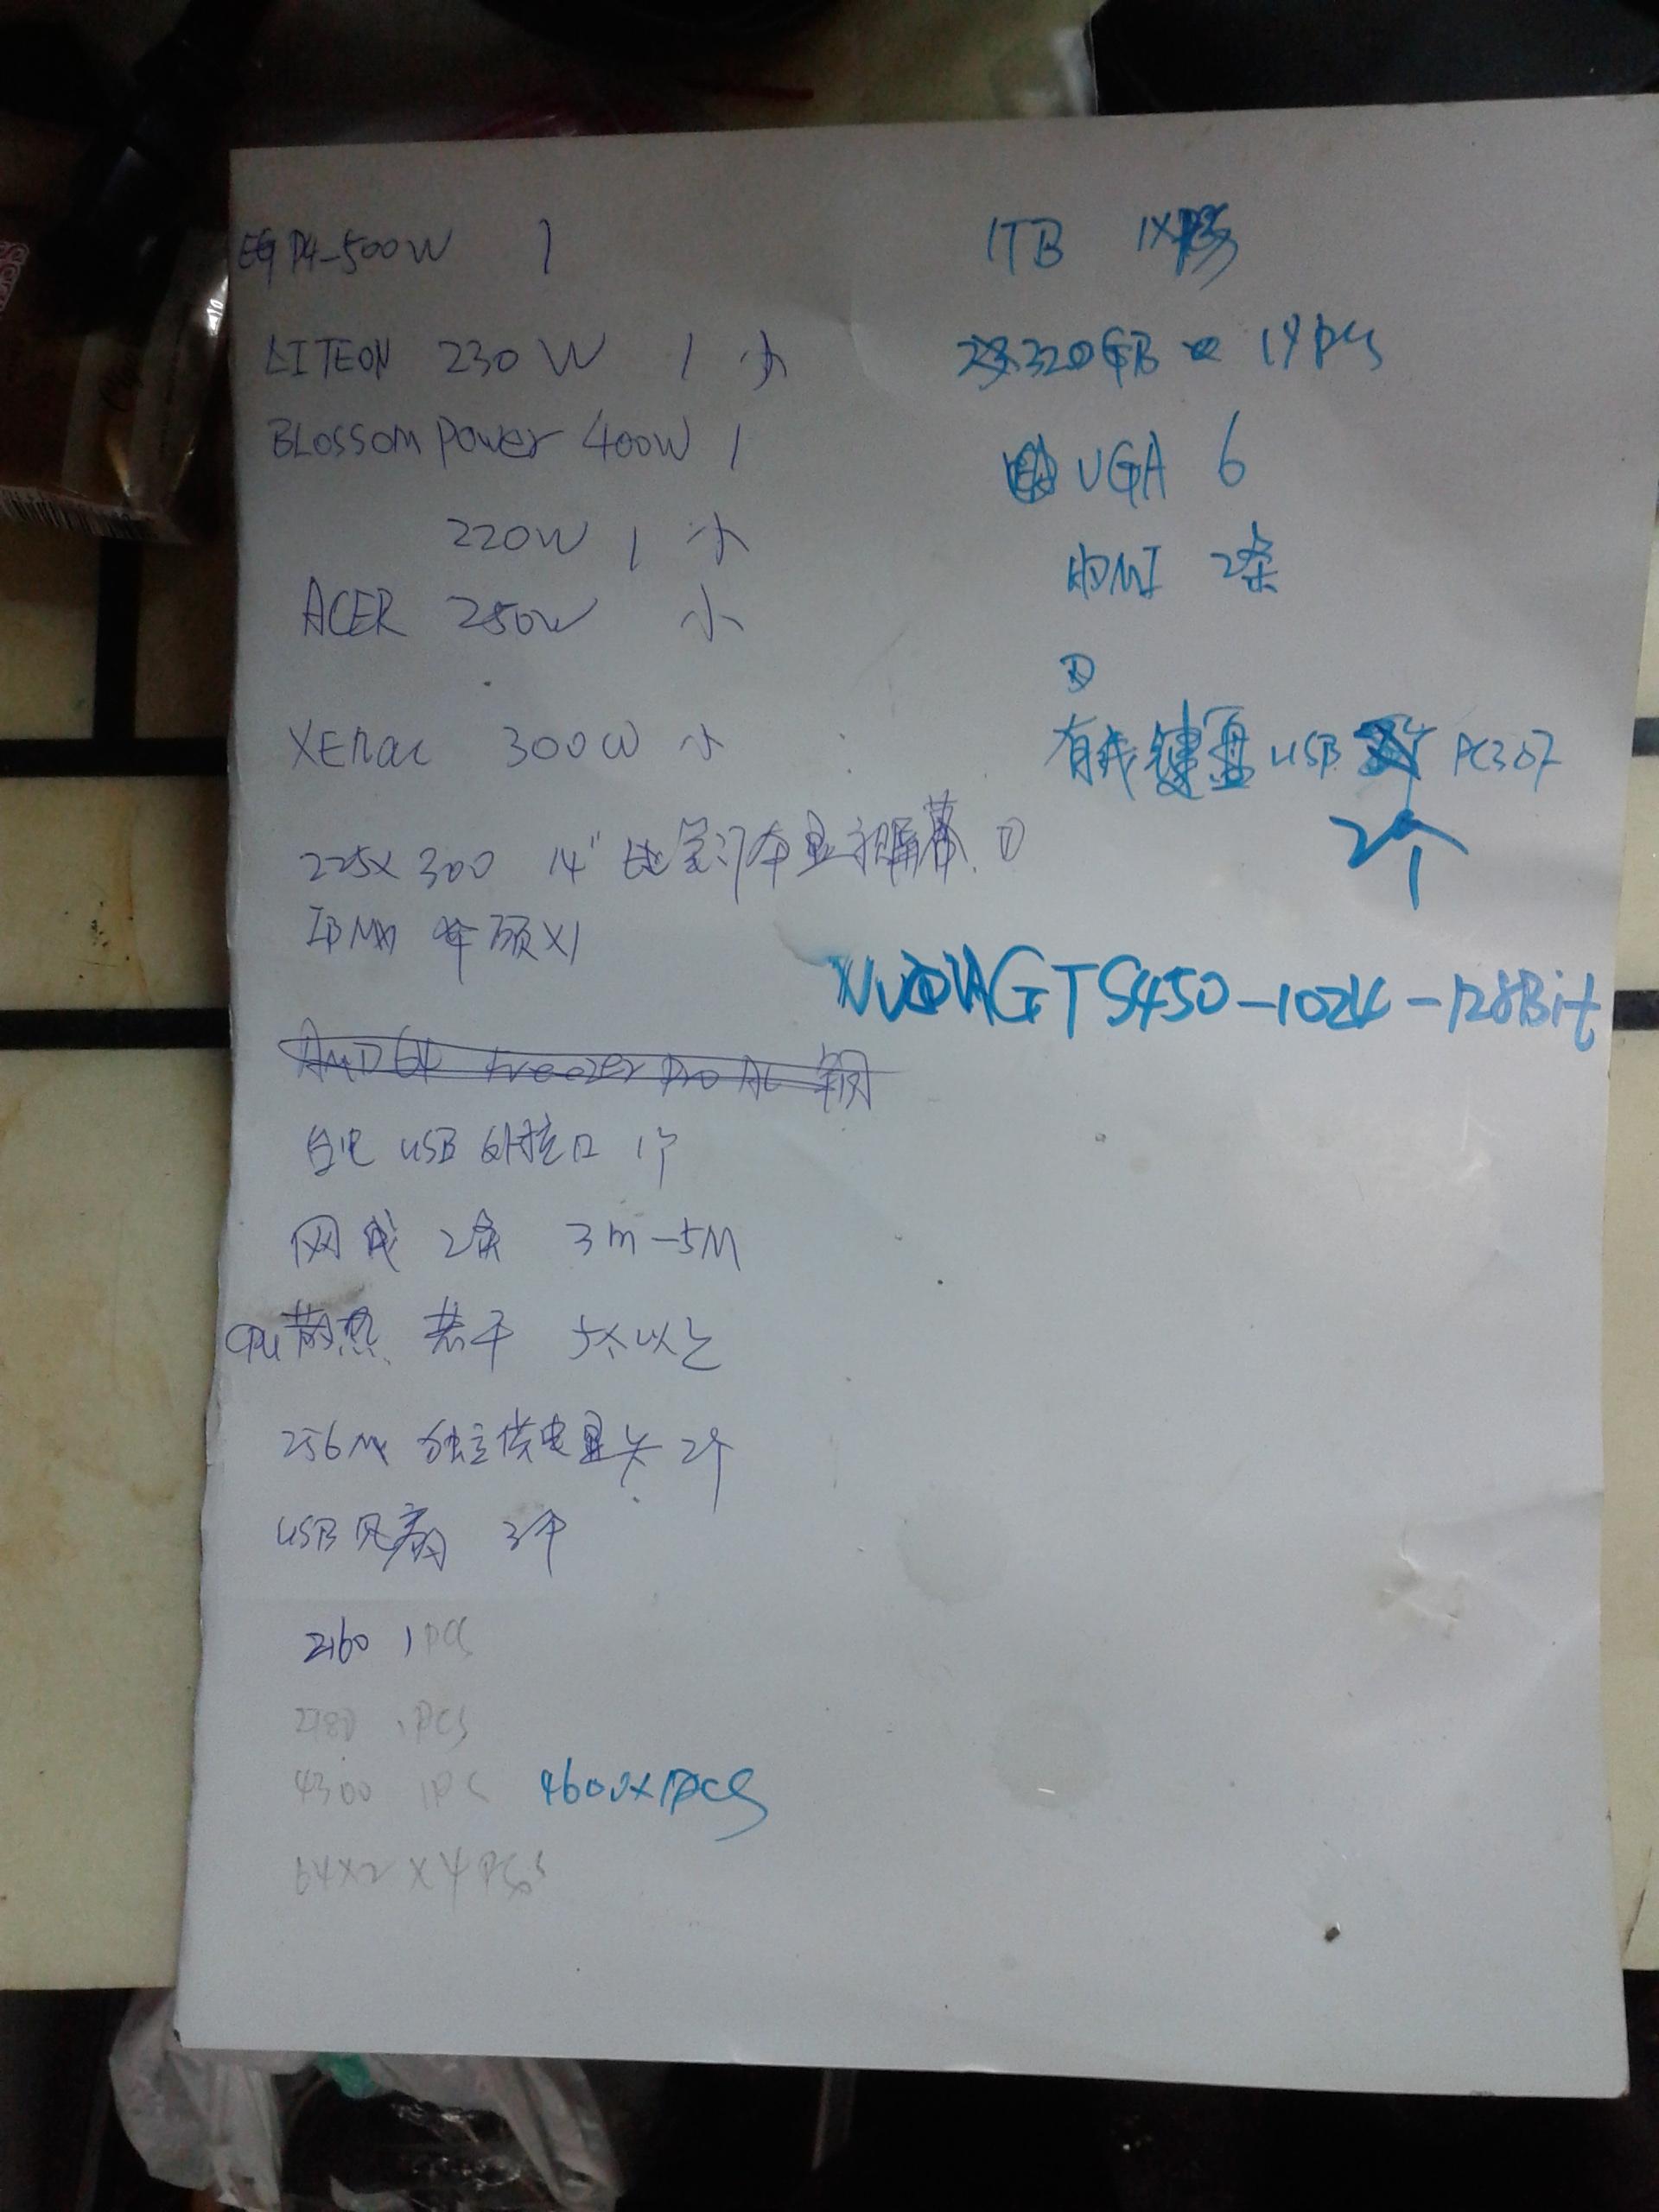 P4-500W 1
LITEON 230W 1 小
BLOSSOM POWER 400W 1
220W 1 小
ACER 250W 小
300W 小
225X300 14" 笔记本显示屏幕 ①
IBM X1
AMD 64 Freezer Pro 铜
USB 外接口 1个
网线 2条 3m-5M
CPU散热 若干 5个以上
256M 独立供电显卡 2个
USB风扇 3个
2160 1PCS
1PCS
4300 1PC 4600X1PCS
64X2 X4PCS
1TB 1X
320GB 14PCS
VGA 6
HDMI 2条
有线键盘 USB PC307
2个
NVIDIA GTS450-1024-128Bit